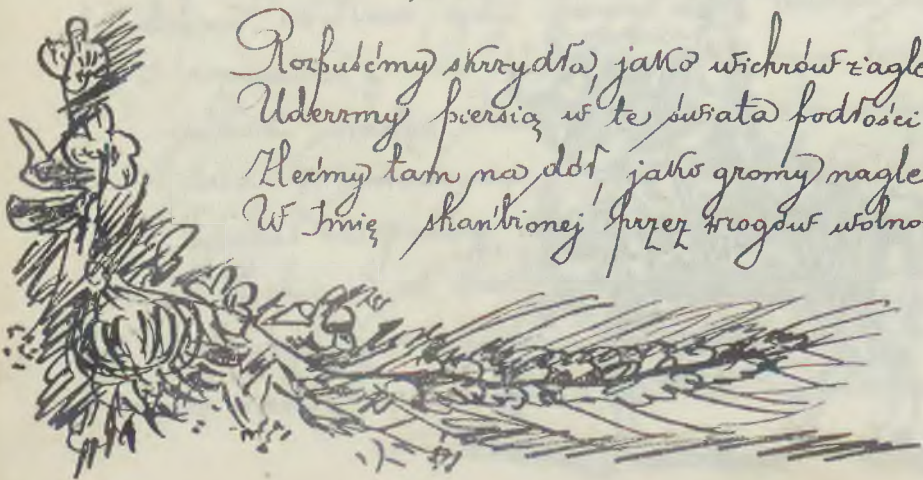 Rozpuśćmy skrzydła, jako wichrów żagle
Uderzmy piersią w te świata podłości
Zlećmy tam na dół, jako gromy nagle
W Imię shańbionej przez wrogów wolno